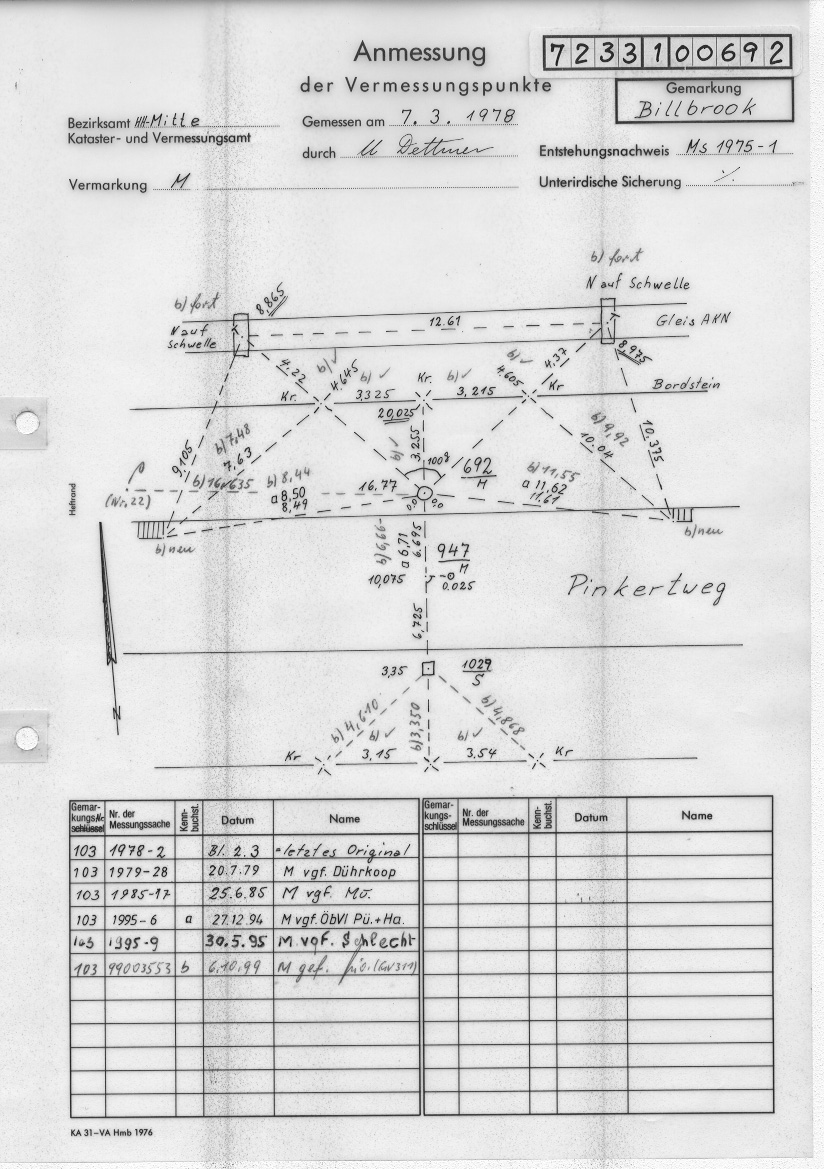 Anmessung
der Vermessungspunkte
7233100692
Gemarkung
Billbrook
Bezirksamt HH-Mitte
Kataster- und Vermessungsamt
Gemessen am 7. 3. 1978
durch U Dettmer
Entstehungsnachweis Ms 1975-1
Vermarkung M
Unterirdische Sicherung ·/.
b) fort
N auf Schwelle
b) fort
8.865
N auf
Schwelle
12.61
Gleis AKN
8,975
4.22
b) ✓
4.645
b) ✓
3,325
Kr.
b) ✓
3,215
b) ✓
4.605
4.37
Kr.
Kr
Bordstein
20,025
b) ✓
3.255
100g
692
M
9.105
b) 7,48
7,63
b) 9,92
10.04
10.375
b) 16,635
b) 8,44
a 8,50
8,49
16.77
b) 11,55
a 11,62
11.61
(Nr. 22)
0,0
0,0
b) neu
b) neu
b) 6,66
a 6,71
6.695
947
M
10,075
0.025
Pinkertweg
6,725
3,35
1029
S
N
b) 4,610
b) 3,350
b) 4,868
Kr
b) ✓
3,15
b) ✓
3.54
Kr
Heftrand
Gemar-kungs-schlüssel Nr. der Messungssache Kenn-buchst. Datum Name
Gemar-kungs-schlüssel Nr. der Messungssache Kenn-buchst. Datum Name
103 1978-2 81. 2. 3 = letztes Original
103 1979-28 20.7.79 M vgf. Dührkoop
103 1985-17 25.6.85 M vgf. Mö.
103 1995-6 a 27.12.94 M vgf. ÖbVI Pü.+Ha.
103 1995-9 30.5.95 M vgf. Schlecht
103 99003553 b 6.10.99 M gef.
KA 31–VA Hmb 1976